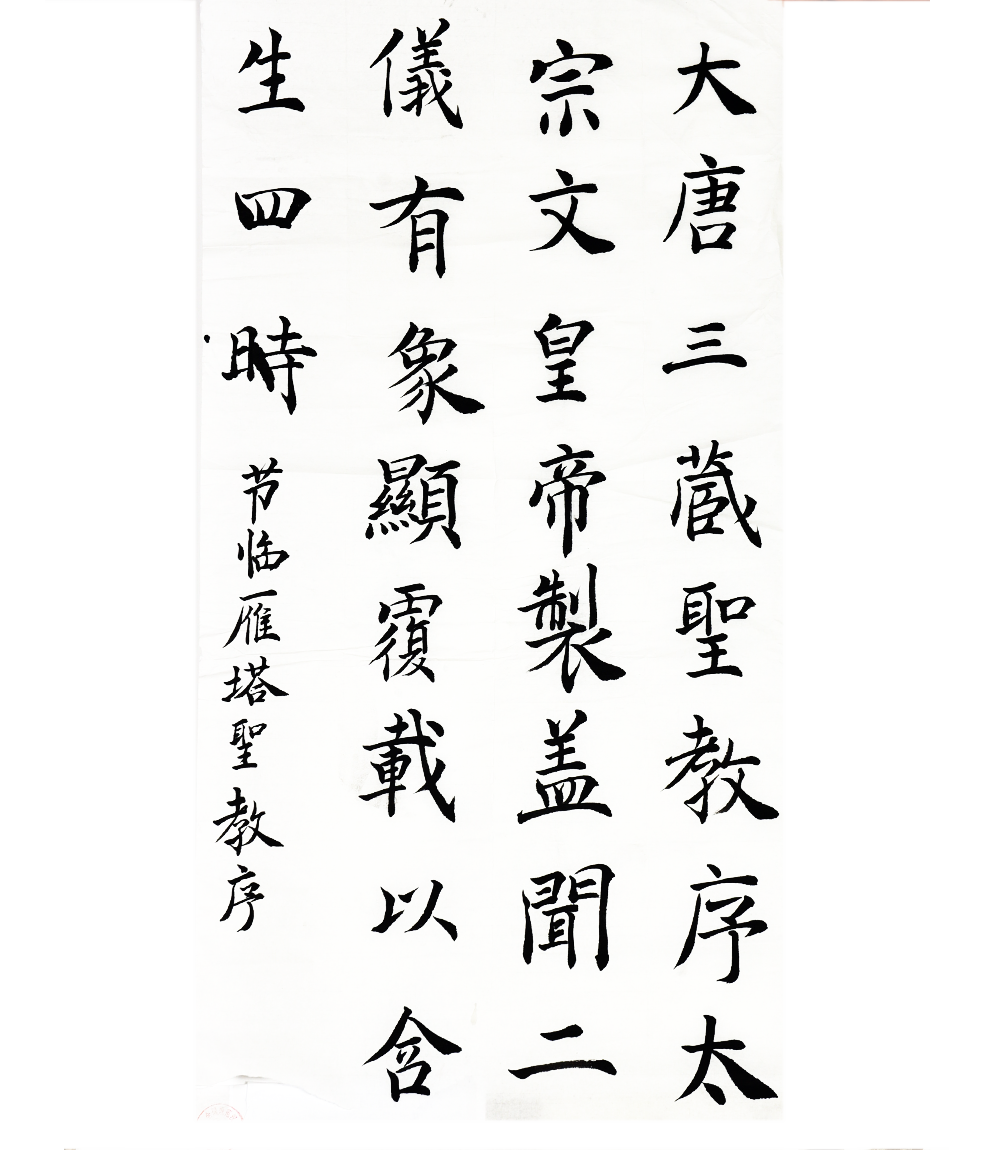 大唐三蔵聖教序太
宗文皇帝製盖聞二
儀有象顯覆載以含
生四時
节临雁塔聖教序